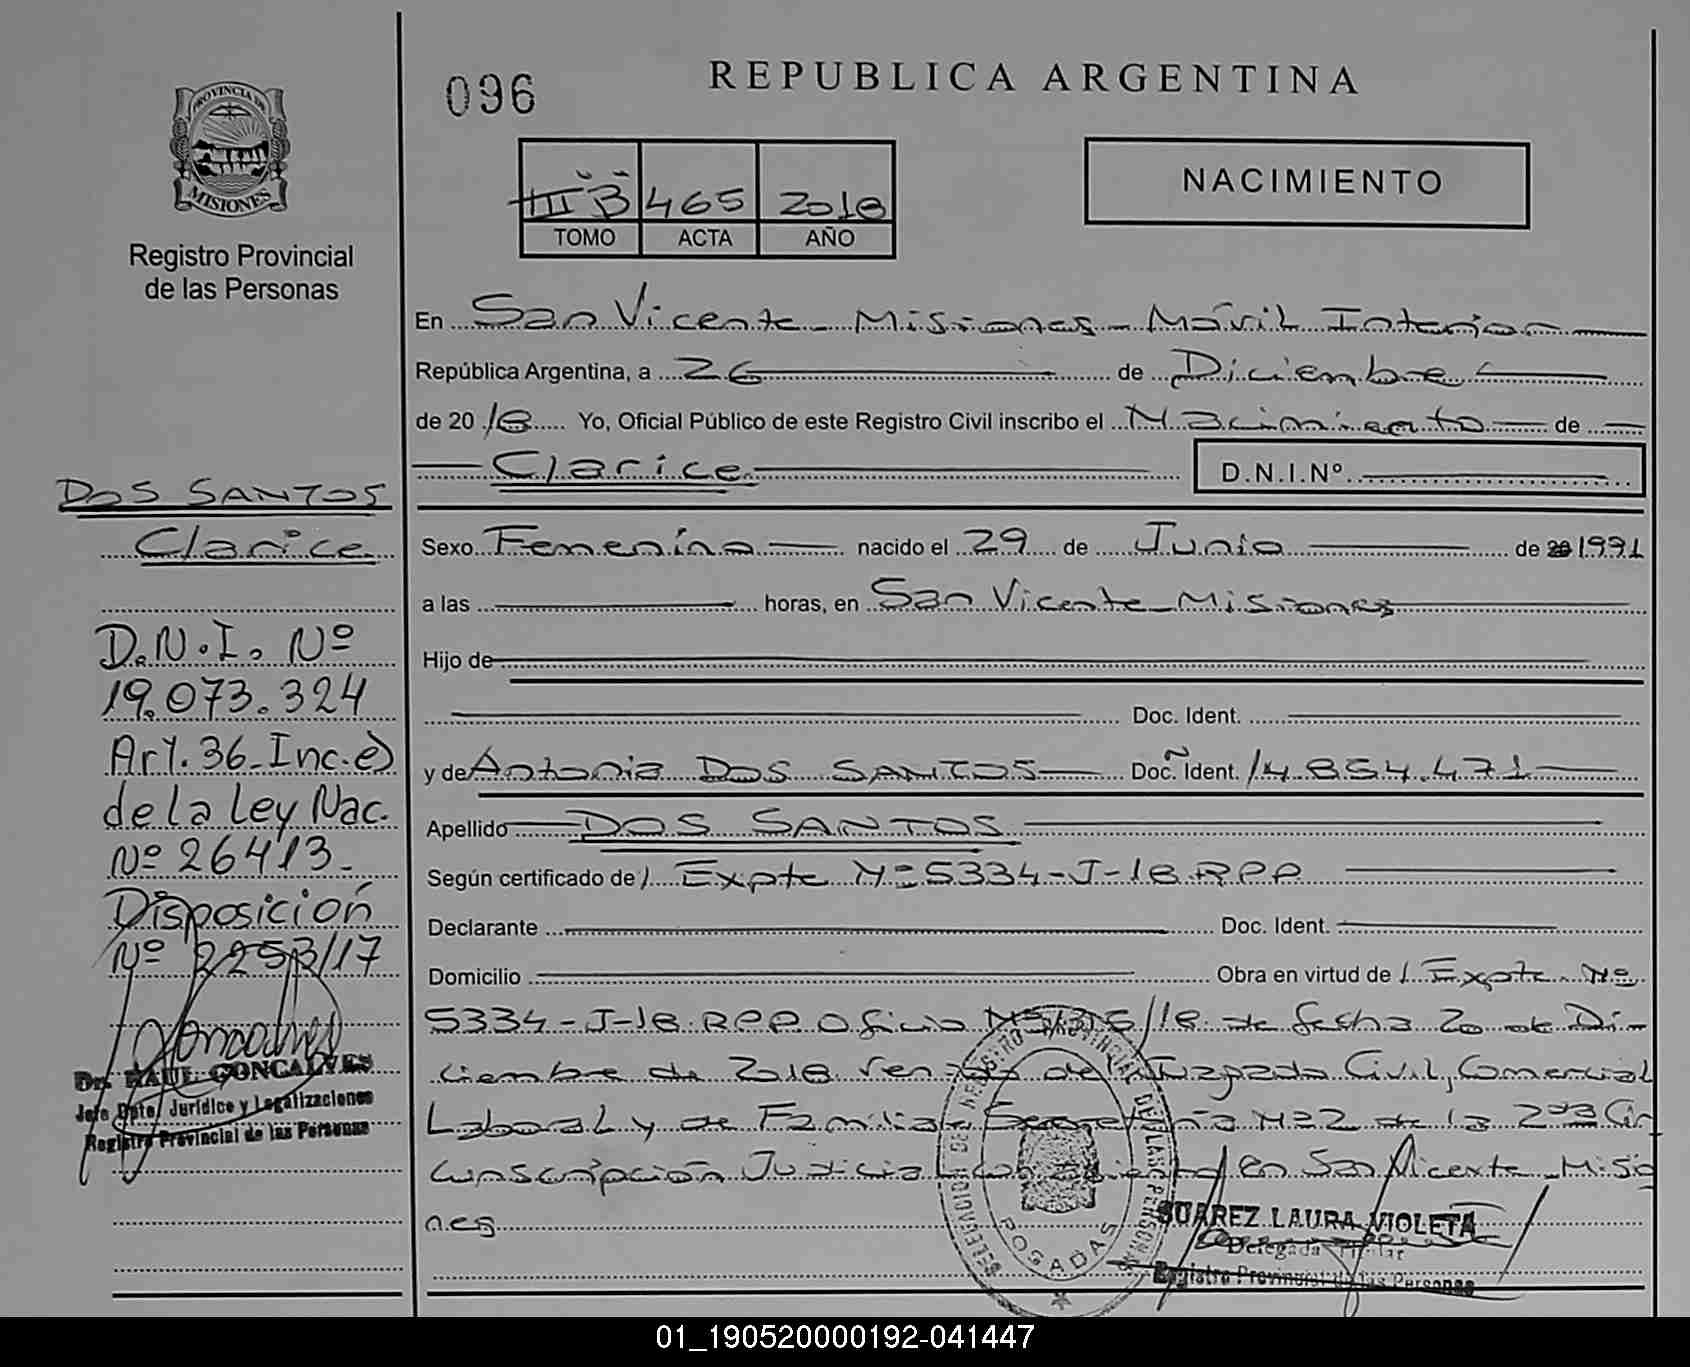 096
REPUBLICA ARGENTINA
PROVINCIA DE
MISIONES
Registro Provincial
de las Personas
III B 465 2018
TOMO ACTA AÑO
NACIMIENTO
En San Vicente - Misiones - Móvil Interior
República Argentina, a 26 de Diciembre
de 2018 Yo, Oficial Público de este Registro Civil inscribo el Nacimiento de
Clarice
D.N.I.Nº
Sexo Femenino nacido el 29 de Junio de 1991
a las horas, en San Vicente - Misiones
Hijo de
Doc. Ident.
y de Antonia DOS SANTOS Doc. Ident. 14.854.471
Apellido DOS SANTOS
Según certificado de Expte Nº 5334-J-18.RPP
Declarante Doc. Ident.
Domicilio Obra en virtud de Expte. Nº
5334-J-18.RPP Oficio de fecha 20 de Di-
ciembre de 2018 Juzgado Civil, Comercial
Laboral y de Familia Secretaría Nº2 de la 2da Cir
cunscripción Judicial con asiento en San Vicente Misio
nes
DOS SANTOS
Clarice
D.N.I. Nº
19.073.324
Art. 36 - Inc. e)
de la Ley Nac.
Nº 26413.
Disposición
Nº 2253/17
Dr. RAUL GONCALVES
Jefe Dpto. Jurídico y Legalizaciones
Registro Provincial de las Personas
POSADAS
SUAREZ LAURA VIOLETA
Delegada Titular
Registro Provincial de las Personas
01_190520000192-041447